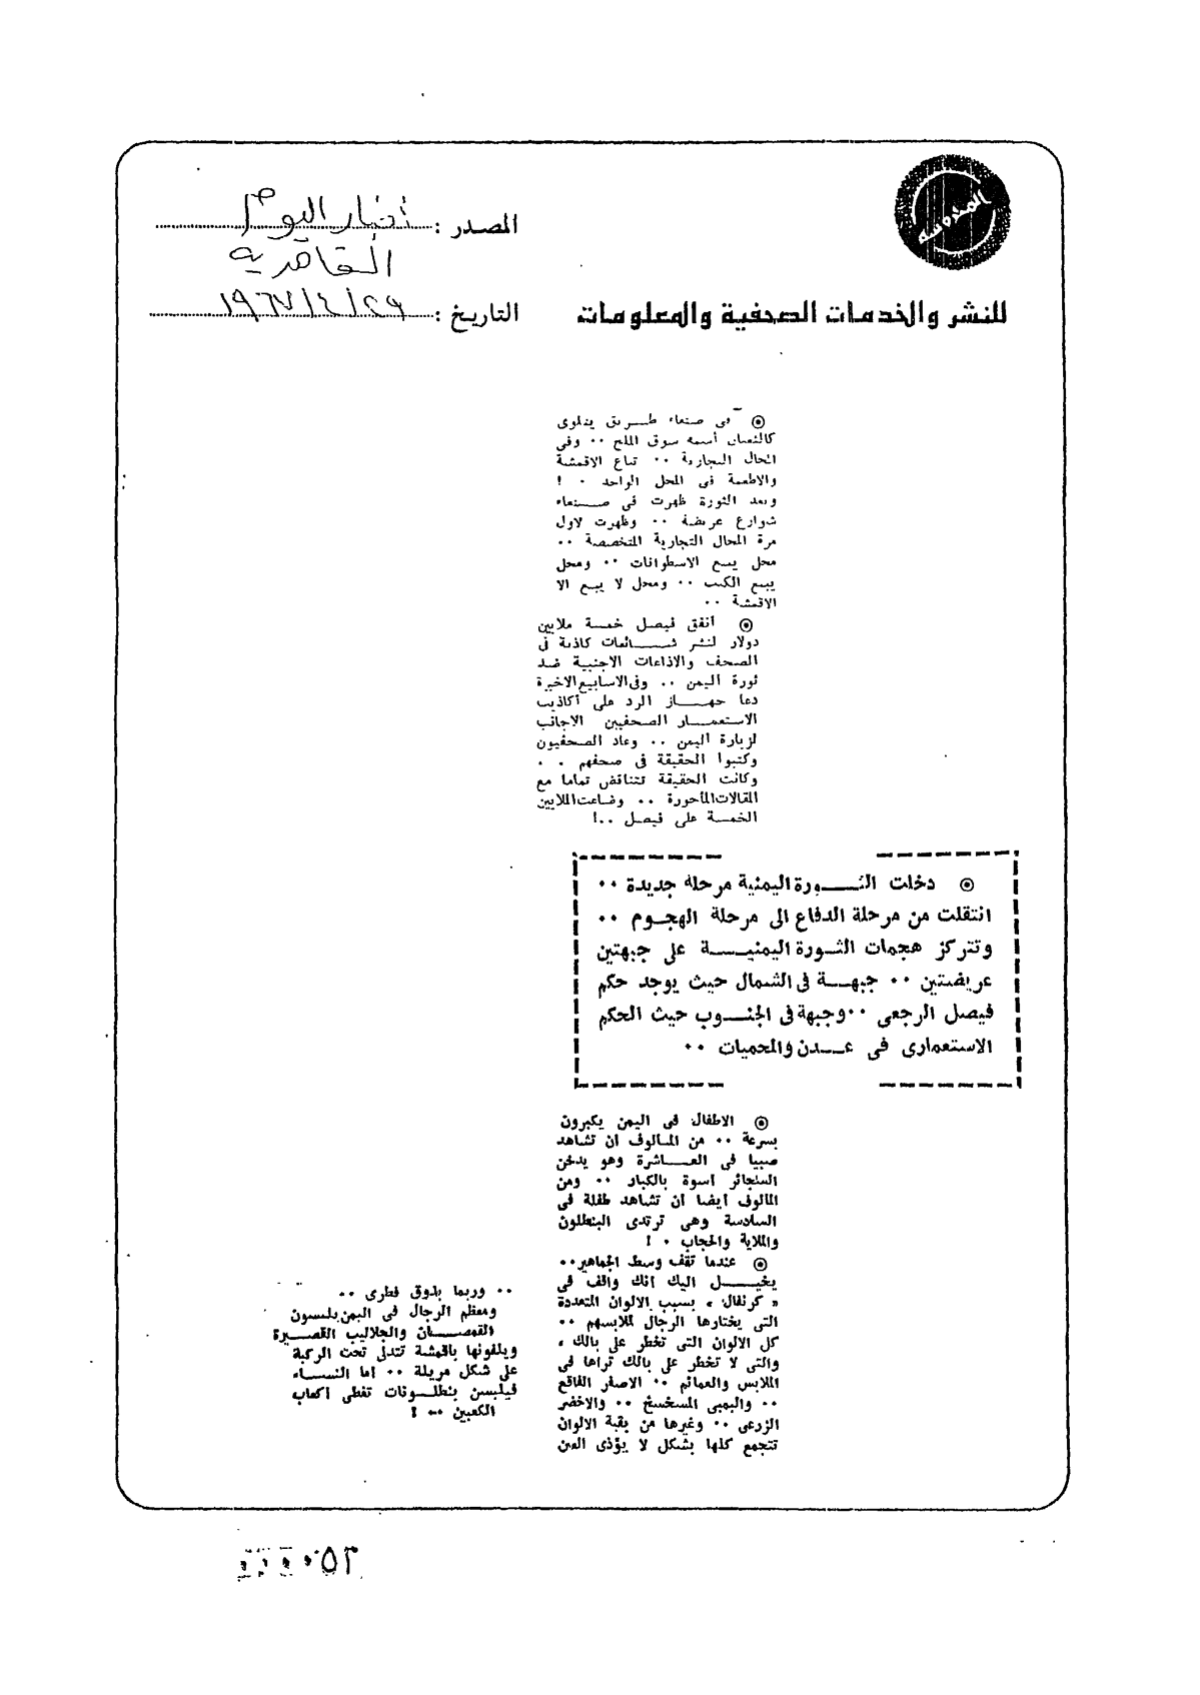 المصدر : أخبار اليوم
القاهرية
التاريخ : ٢٩/٤/١٩٦٧
للنشر والخدمات الصحفية والمعلومات
فى صنعاء طريق يتلوى
كالثعبان أسمه سوق الملح ٠٠ وفى
المحال التجارية ٠٠ تباع الاقمشة
والاطعمة فى المحل الواحد ٠ !
وبعد الثورة ظهرت فى صنعاء
شوارع عريضة ٠٠ وظهرت لاول
مرة المحال التجارية المتخصصة ٠٠
محل يبيع الاسطوانات ٠٠ ومحل
يبيع الكتب ٠٠ ومحل لا يبيع الا
الاقمشة ٠٠
انفق فيصل خمسة ملايين
دولار لنشر شائعات كاذبة فى
الصحف والاذاعات الاجنبية ضد
ثورة اليمن ٠٠ وفى الاسابيع الاخيرة
دعا جهاز الرد على أكاذيب
الاستعمار الصحفيين الاجانب
لزيارة اليمن ٠٠ وعاد الصحفيون
وكتبوا الحقيقة فى صحفهم ٠ ٠
وكانت الحقيقة تتناقض تماما مع
المقالات المأجورة ٠٠ وضاعت الملايين
الخمسة على فيصل ٠٠!
دخلت الثورة اليمنية مرحلة جديدة ٠٠
انتقلت من مرحلة الدفاع الى مرحلة الهجوم ٠٠
وتتركز هجمات الثورة اليمنية على جبهتين
عريضتين ٠٠ جبهة فى الشمال حيث يوجد حكم
فيصل الرجعى ٠٠ وجبهة فى الجنوب حيث الحكم
الاستعمارى فى عدن والمحميات ٠٠
الاطفال فى اليمن يكبرون
بسرعة ٠٠ من المألوف ان تشاهد
صبيا فى العاشرة وهو يدخن
السجائر اسوة بالكبار ٠٠ ومن
المالوف ايضا ان تشاهد طفلة فى
السادسة وهى ترتدى البنطلون
والملاية والحجاب ٠ !
عندما تقف وسط الجماهير ٠٠
يخيل اليك انك واقف فى
« كرنفال » بسبب الالوان المتعددة
التى يختارها الرجال لملابسهم ٠٠
كل الالوان التى تخطر على بالك ،
والتى لا تخطر على بالك تراها فى
الملابس والعمائم ٠٠ الاصفر الفاقع
٠٠ والبمبى المسخسخ ٠٠ والاخضر
الزرعى ٠٠ وغيرها من بقية الالوان
تتجمع كلها بشكل لا يؤذى العين
٠٠ وربما بذوق فطرى ٠٠
ومعظم الرجال فى اليمن يلبسون
القمصان والجلاليب القصيرة
ويلفونها باقمشة تتدلى تحت الركبة
على شكل مريلة ٠٠ اما النساء
فيلبسن بنطلونات تغطى اكعاب
الكعبين ٠٠ !